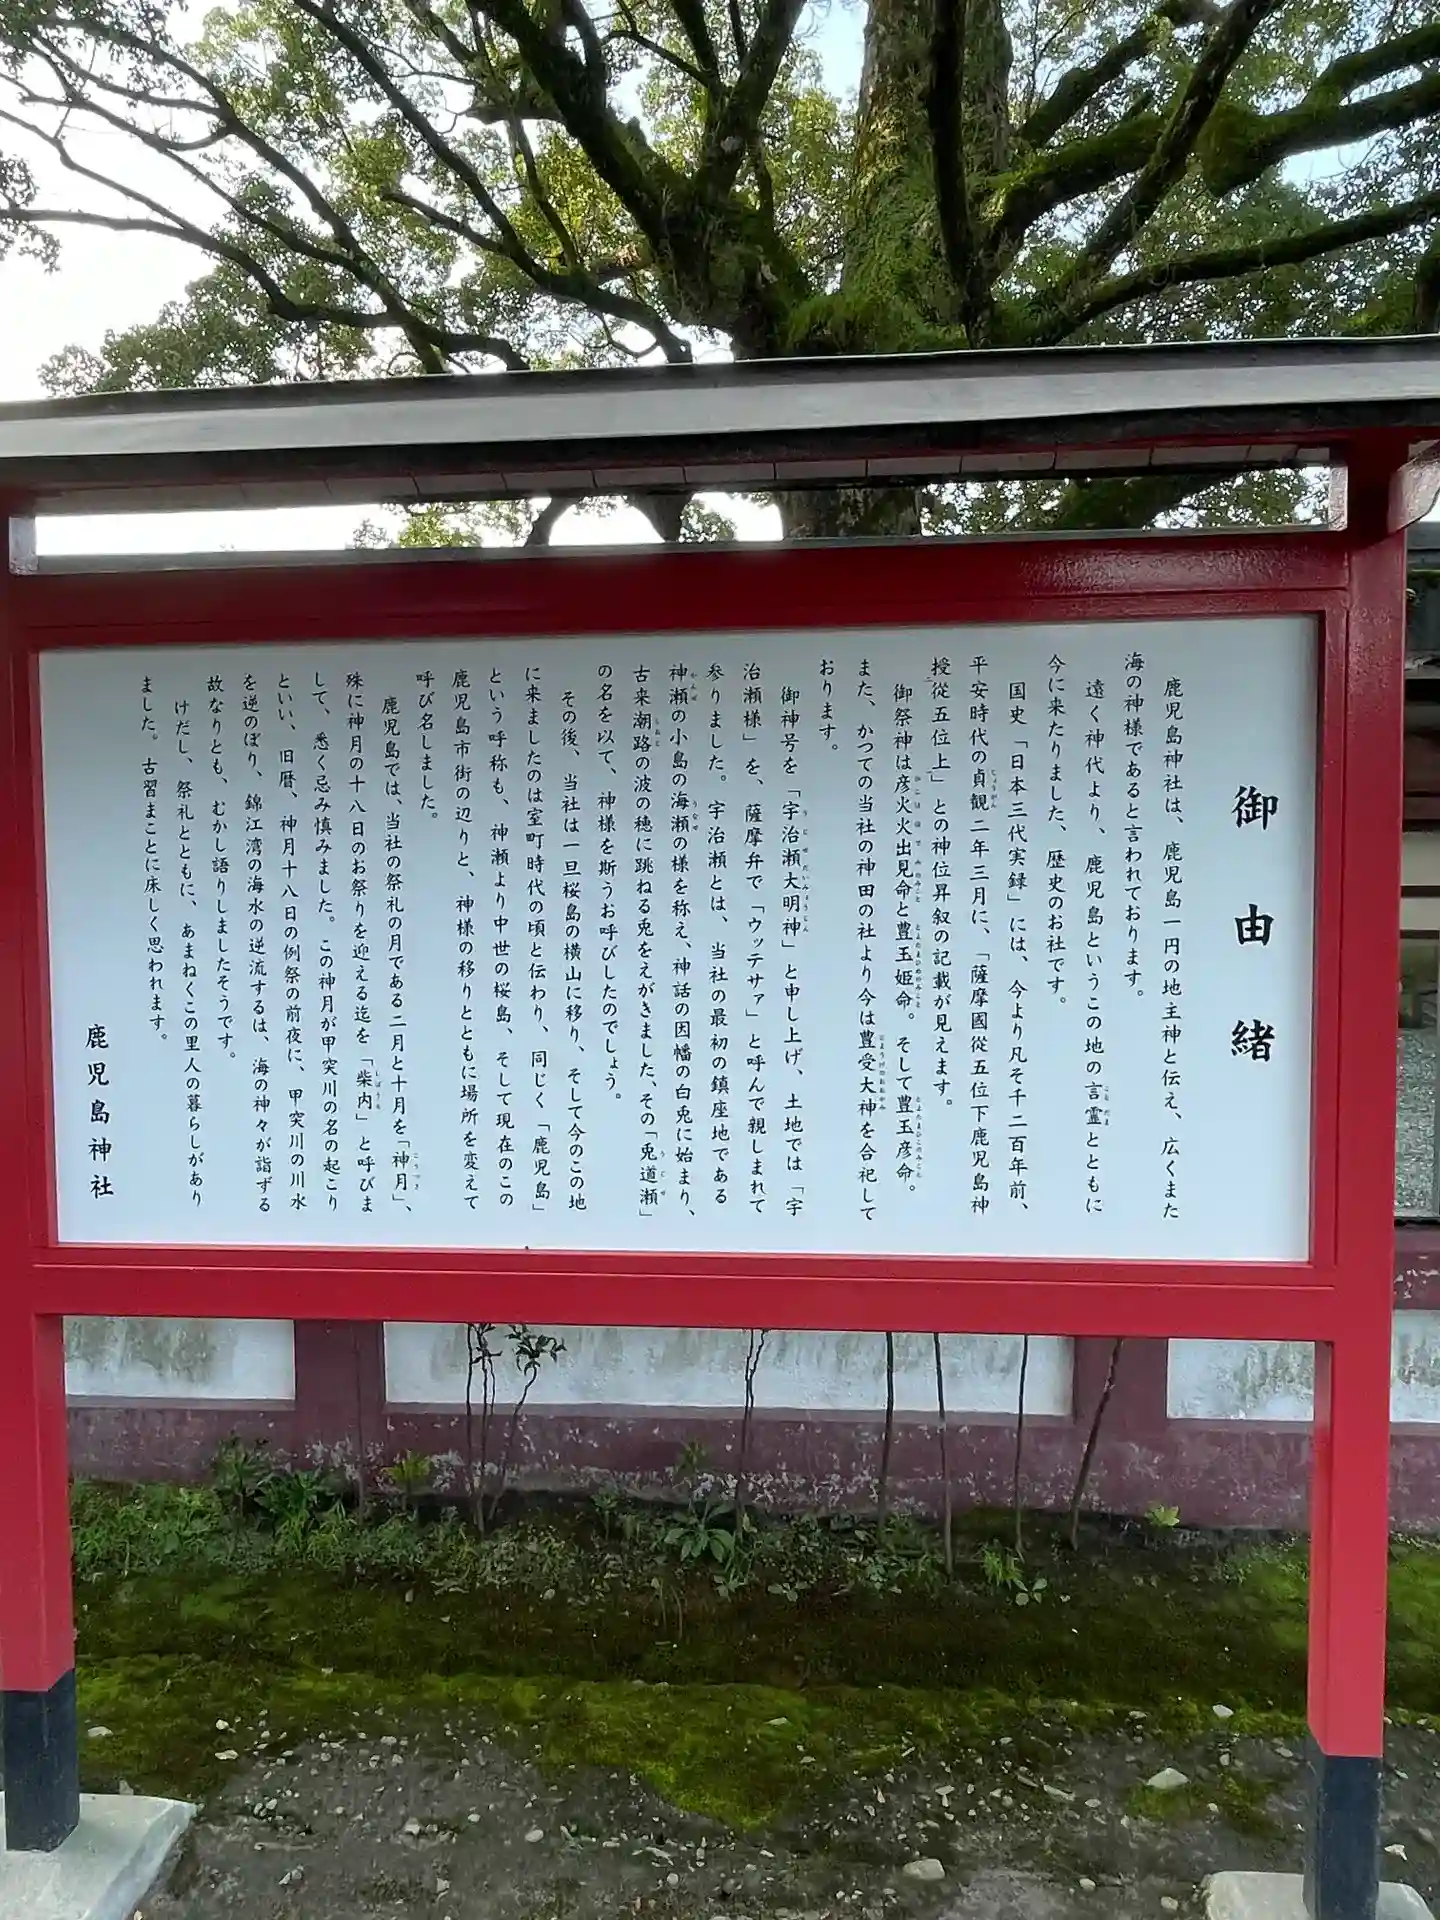 御由緒
鹿児島神社は、鹿児島一円の地主神と伝え、広くまた
海の神様であると言われております。
遠く神代より、鹿児島というこの地の言霊とともに
今に来たりました、歴史のお社です。
国史「日本三代実録」には、今より凡そ千二百年前、
平安時代の貞観二年三月に、「薩摩國從五位下鹿児島神
授從五位上」との神位昇叙の記載が見えます。
御祭神は彦火火出見命と豊玉姫命。そして豊玉彦命。
また、かつての当社の神田の社より今は豊受大神を合祀して
おります。
御神号を「宇治瀬大明神」と申し上げ、土地では「宇
治瀬様」を、薩摩弁で「ウッテサァ」と呼んで親しまれて
参りました。宇治瀬とは、当社の最初の鎮座地である
神瀬の小島の海瀬の様を称え、神話の因幡の白兎に始まり、
古来潮路の波の穂に跳ねる兎をえがきました、その「兎道瀬」
の名を以て、神様を斯うお呼びしたのでしょう。
その後、当社は一旦桜島の横山に移り、そして今のこの地
に来ましたのは室町時代の頃と伝わり、同じく「鹿児島」
という呼称も、神瀬より中世の桜島、そして現在のこの
鹿児島市街の辺りと、神様の移りとともに場所を変えて
呼び名しました。
鹿児島では、当社の祭礼の月である二月と十月を「神月」、
殊に神月の十八日のお祭りを迎える迄を「柴内」と呼びま
して、悉く忌み慎みました。この神月が甲突川の名の起こり
といい、旧暦、神月十八日の例祭の前夜に、甲突川の川水
を逆のぼり、錦江湾の海水の逆流するは、海の神々が詣ずる
故なりとも、むかし語りしましたそうです。
けだし、祭礼とともに、あまねくこの里人の暮らしがあり
ました。古習まことに床しく思われます。
鹿児島神社